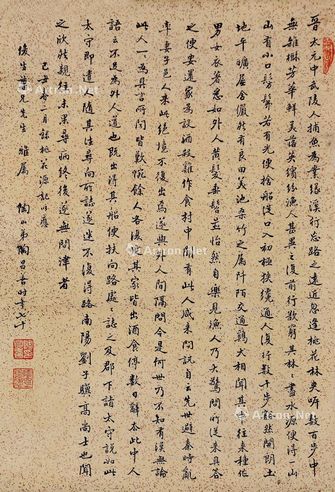 晉太元中武陵人捕魚為業緣溪行忘路之遠近忽逢桃花林夾岸數百步中
無雜樹芳華鮮美落英繽紛漁人甚異之復前行欲窮其林林盡水源便得一山
山有小口髣髴若有光便捨船從口入初極狹纔通人復行數十步豁然開朗土
地平曠屋舍儼然有良田美池桑竹之屬阡陌交通雞犬相聞其中往來種作
男女衣著悉如外人黃髮垂髫並怡然自樂見漁人乃大驚問所從來具答
之便要還家為設酒殺雞作食村中聞有此人咸來問訊自云先世避秦時亂
率妻子邑人來此絕境不復出焉遂與外人間隔問今是何世乃不知有漢無論
此人一一為具言所聞皆歎惋餘人各復延至其家皆出酒食停數日辭去此中人
語云不足為外人道也既出得其船便扶向路處處誌之及郡下詣太守說如此
太守即遣人隨其往尋向所誌遂迷不復得路南陽劉子驥高尚士也聞
之欣然親往未果尋病終後遂無問津者
己丑月錄桃花源記應
俊生兄先生雅屬 弟陶昌善時年七十